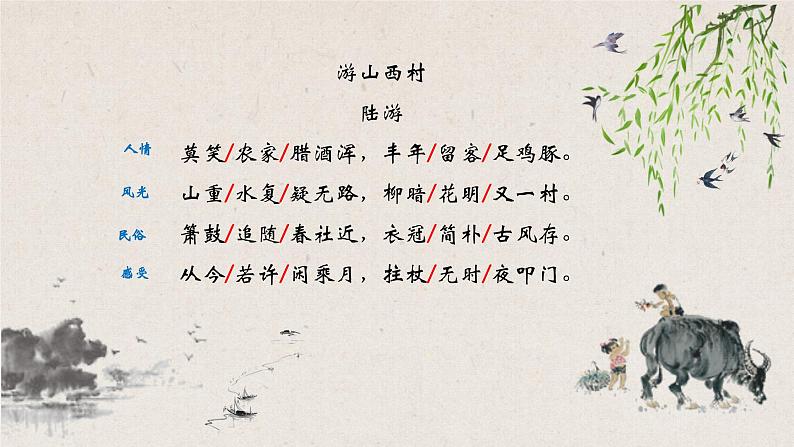 游山西村
陆游
人情 莫笑/农家/腊酒浑，丰年/留客/足鸡豚。
风光 山重/水复/疑无路，柳暗/花明/又一村。
民俗 箫鼓/追随/春社近，衣冠/简朴/古风存。
感受 从今/若许/闲乘月，拄杖/无时/夜叩门。